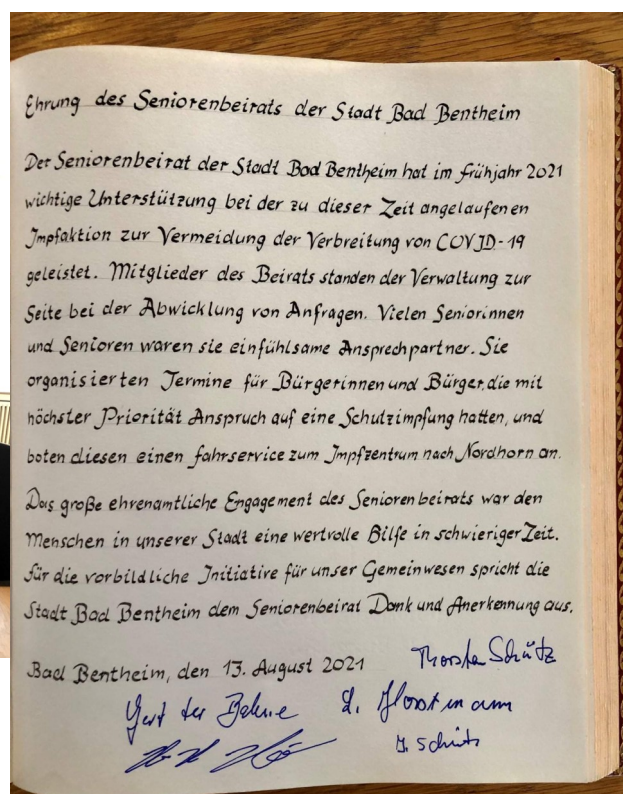 Ehrung des Seniorenbeirats der Stadt Bad Bentheim
Der Seniorenbeirat der Stadt Bad Bentheim hat im Frühjahr 2021
wichtige Unterstützung bei der zu dieser Zeit angelaufenen
Impfaktion zur Vermeidung der Verbreitung von COVID-19
geleistet. Mitglieder des Beirats standen der Verwaltung zur
Seite bei der Abwicklung von Anfragen. Vielen Seniorinnen
und Senioren waren sie einfühlsame Ansprechpartner. Sie
organisierten Termine für Bürgerinnen und Bürger, die mit
höchster Priorität Anspruch auf eine Schutzimpfung hatten, und
boten diesen einen Fahrservice zum Impfzentrum nach Nordhorn an.
Das große ehrenamtliche Engagement des Seniorenbeirats war den
Menschen in unserer Stadt eine wertvolle Bilfe in schwieriger Zeit.
Für die vorbildliche Initiative für unser Gemeinwesen spricht die
Stadt Bad Bentheim dem Seniorenbeirat Dank und Anerkennung aus.
Bad Bentheim, den 13. August 2021
Thorsten Schütz
Gert ter
Horstmann